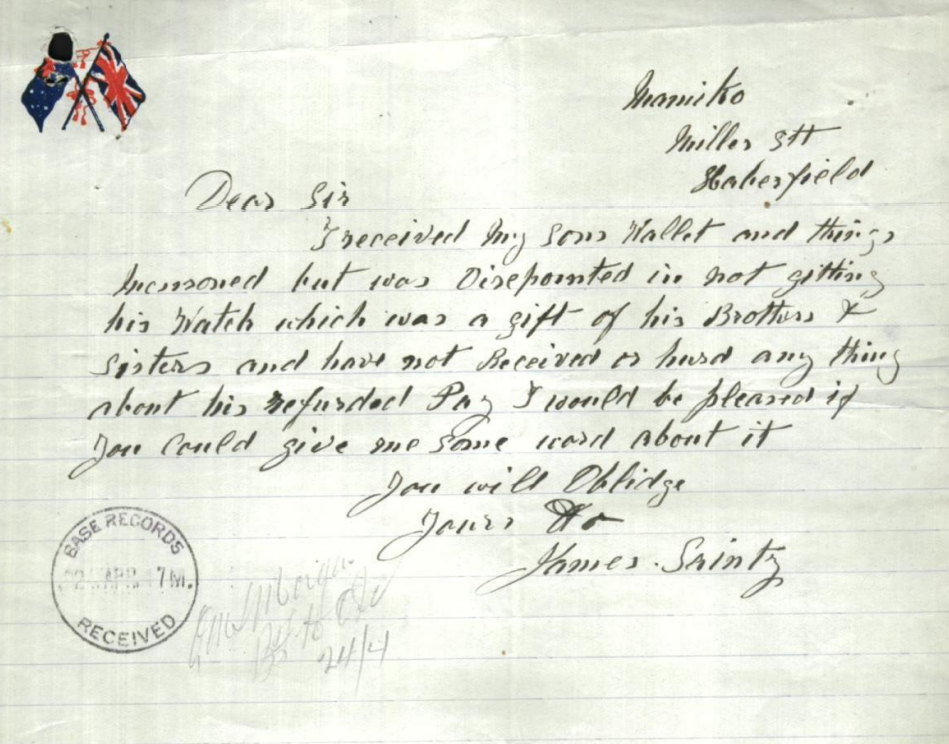 Mamiko
Miller Stt
Haberfield
Dear Sir
I received My Sons Wallet and things
but was Disepointed in not gitting
his Watch which was a gift of his Brothers &
Sisters and have not Received or hurd any thing
about his refunded Pay I would be pleased if
You Could give me Some word about it
You will Oblidge
Yours
James
BASE RECORDS
APR 17 M.
RECEIVED
24/4